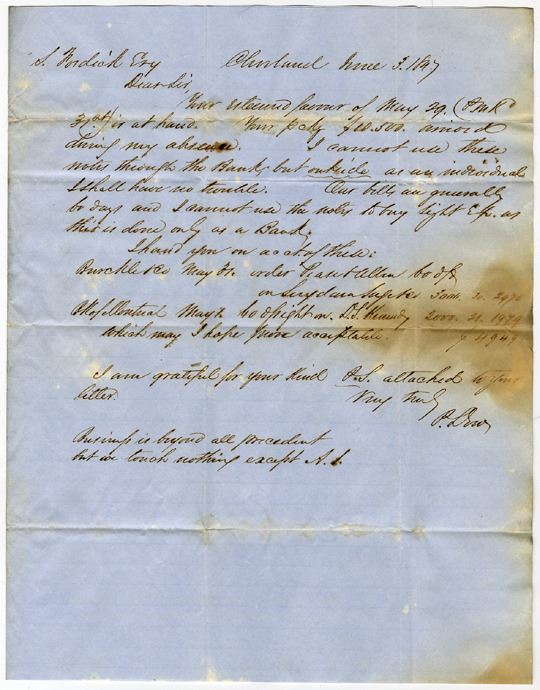 Cleveland June 3. 1847
Dear Sir,
Your esteemed favour of May 29.
is at hand. Your pckg $10.500. arrived
during my absence. I cannot use these
notes through the Bank, but outside as an individual
I shall have no trouble. Our bills are generally
60 days and I cannot use the notes to buy sight Ex. as
this is done only as a Bank.
I hand you on acct of these:
May order 60 d/s
on
May 60 d/sight on Kennedy 2000.
which may I hope prove acceptable.
I am grateful for your kind P.S. attached to your
letter. Very truly
Business is beyond all precedent
but we touch nothing except A.1.